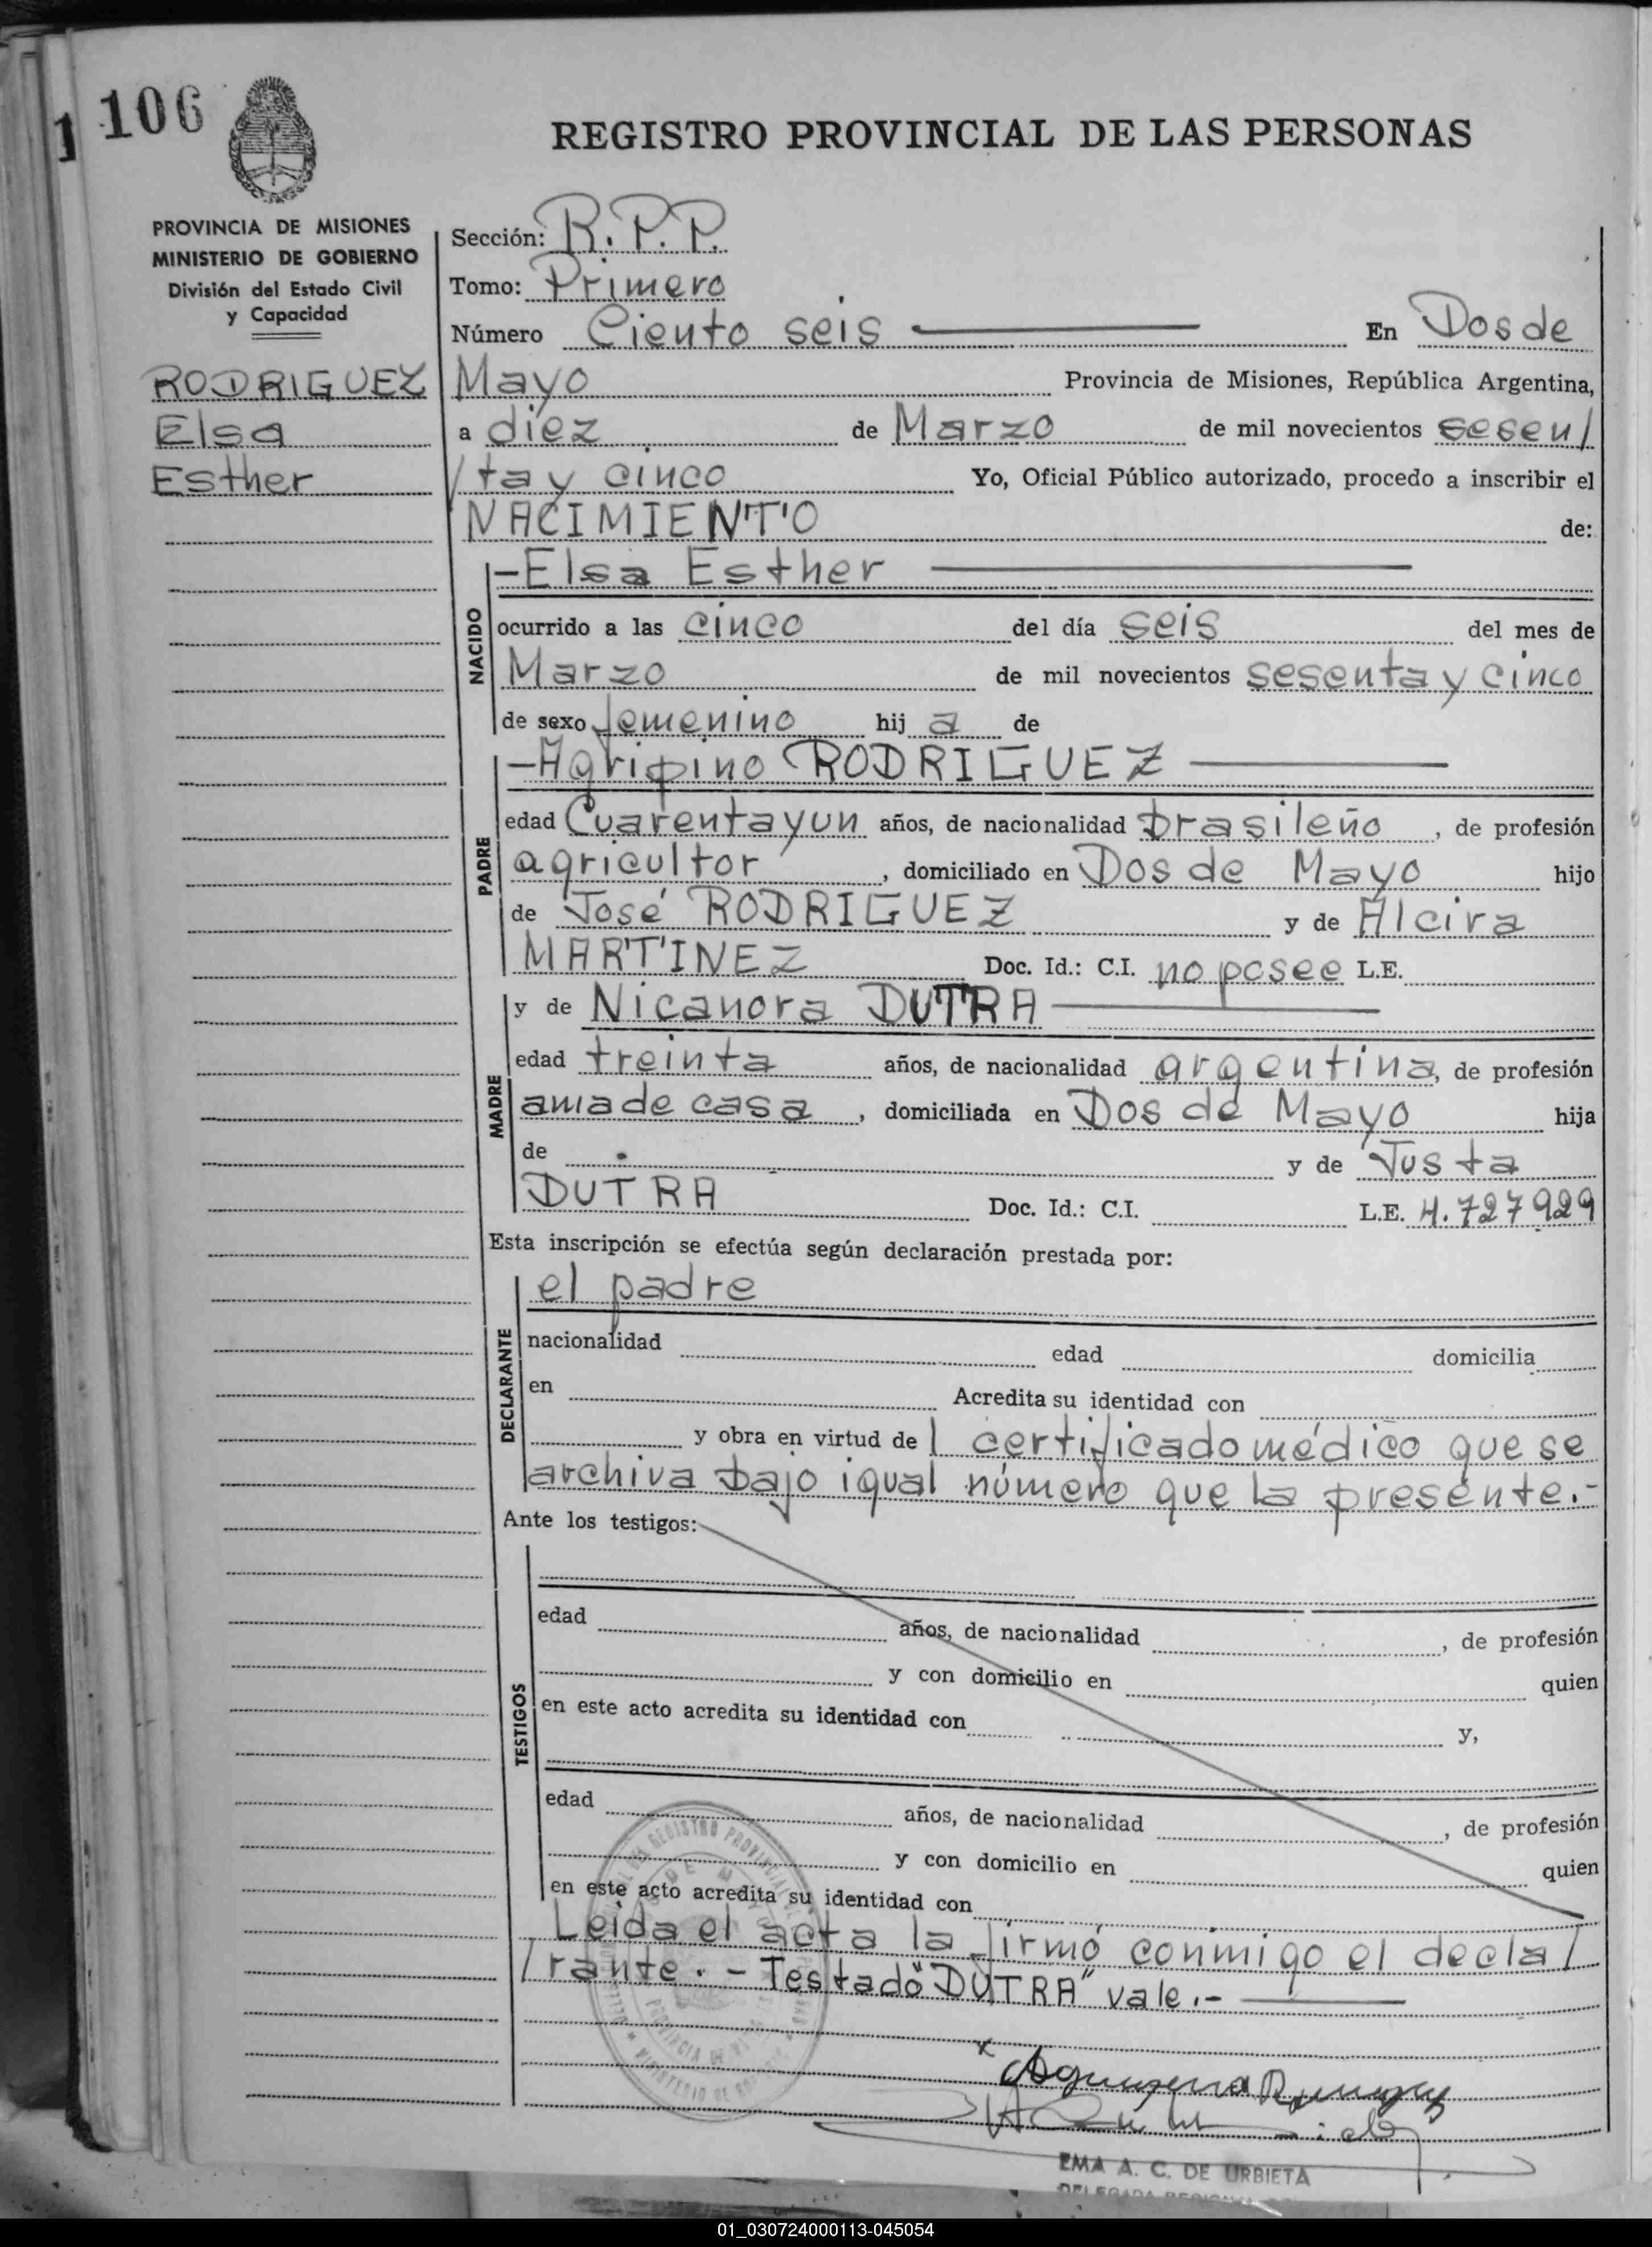 1 106
REGISTRO PROVINCIAL DE LAS PERSONAS
PROVINCIA DE MISIONES
MINISTERIO DE GOBIERNO
División del Estado Civil
y Capacidad
RODRIGUEZ
Elsa
Esther
Sección: R.P.P.
Tomo: Primero
Número Ciento seis En Dos de
Mayo Provincia de Misiones, República Argentina,
a diez de Marzo de mil novecientos sesen/
/ta y cinco Yo, Oficial Público autorizado, procedo a inscribir el
NACIMIENTO de:
NACIDO
-Elsa Esther
ocurrido a las cinco del día seis del mes de
Marzo de mil novecientos sesenta y cinco
de sexo femenino hij a de
PADRE
-Agripino RODRIGUEZ
edad Cuarenta y un años, de nacionalidad brasileño, de profesión
agricultor, domiciliado en Dos de Mayo hijo
de José RODRIGUEZ y de Alcira
MARTINEZ Doc. Id.: C.I. no posee L.E.
MADRE
y de Nicanora DUTRA
edad treinta años, de nacionalidad argentina, de profesión
ama de casa, domiciliada en Dos de Mayo hija
de y de Justa
DUTRA Doc. Id.: C.I. L.E. 4.727929
Esta inscripción se efectúa según declaración prestada por:
DECLARANTE
el padre
nacionalidad edad domicilia
en Acredita su identidad con
y obra en virtud de 1 certificado médico que se
archiva bajo igual número que la presente.-
Ante los testigos:
TESTIGOS
edad años, de nacionalidad , de profesión
y con domicilio en quien
en este acto acredita su identidad con y,
edad años, de nacionalidad , de profesión
y con domicilio en quien
en este acto acredita su identidad con
Leida el acta la firmó conmigo el decla/
/rante.- Testado "DUTRA" vale.-
EMA A. C. DE URBIETA
01_030724000113-045054